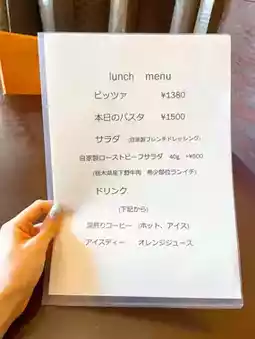 lunch menu
ピッツァ ¥1380
本日のパスタ ¥1500
サラダ (自家製フレンチドレッシング)
自家製ローストビーフサラダ 40g +¥600
(栃木県産下野牛肉 希少部位ランイチ)
ドリンク
(下記から)
深煎りコーヒー (ホット、アイス)
アイスティー オレンジジュース